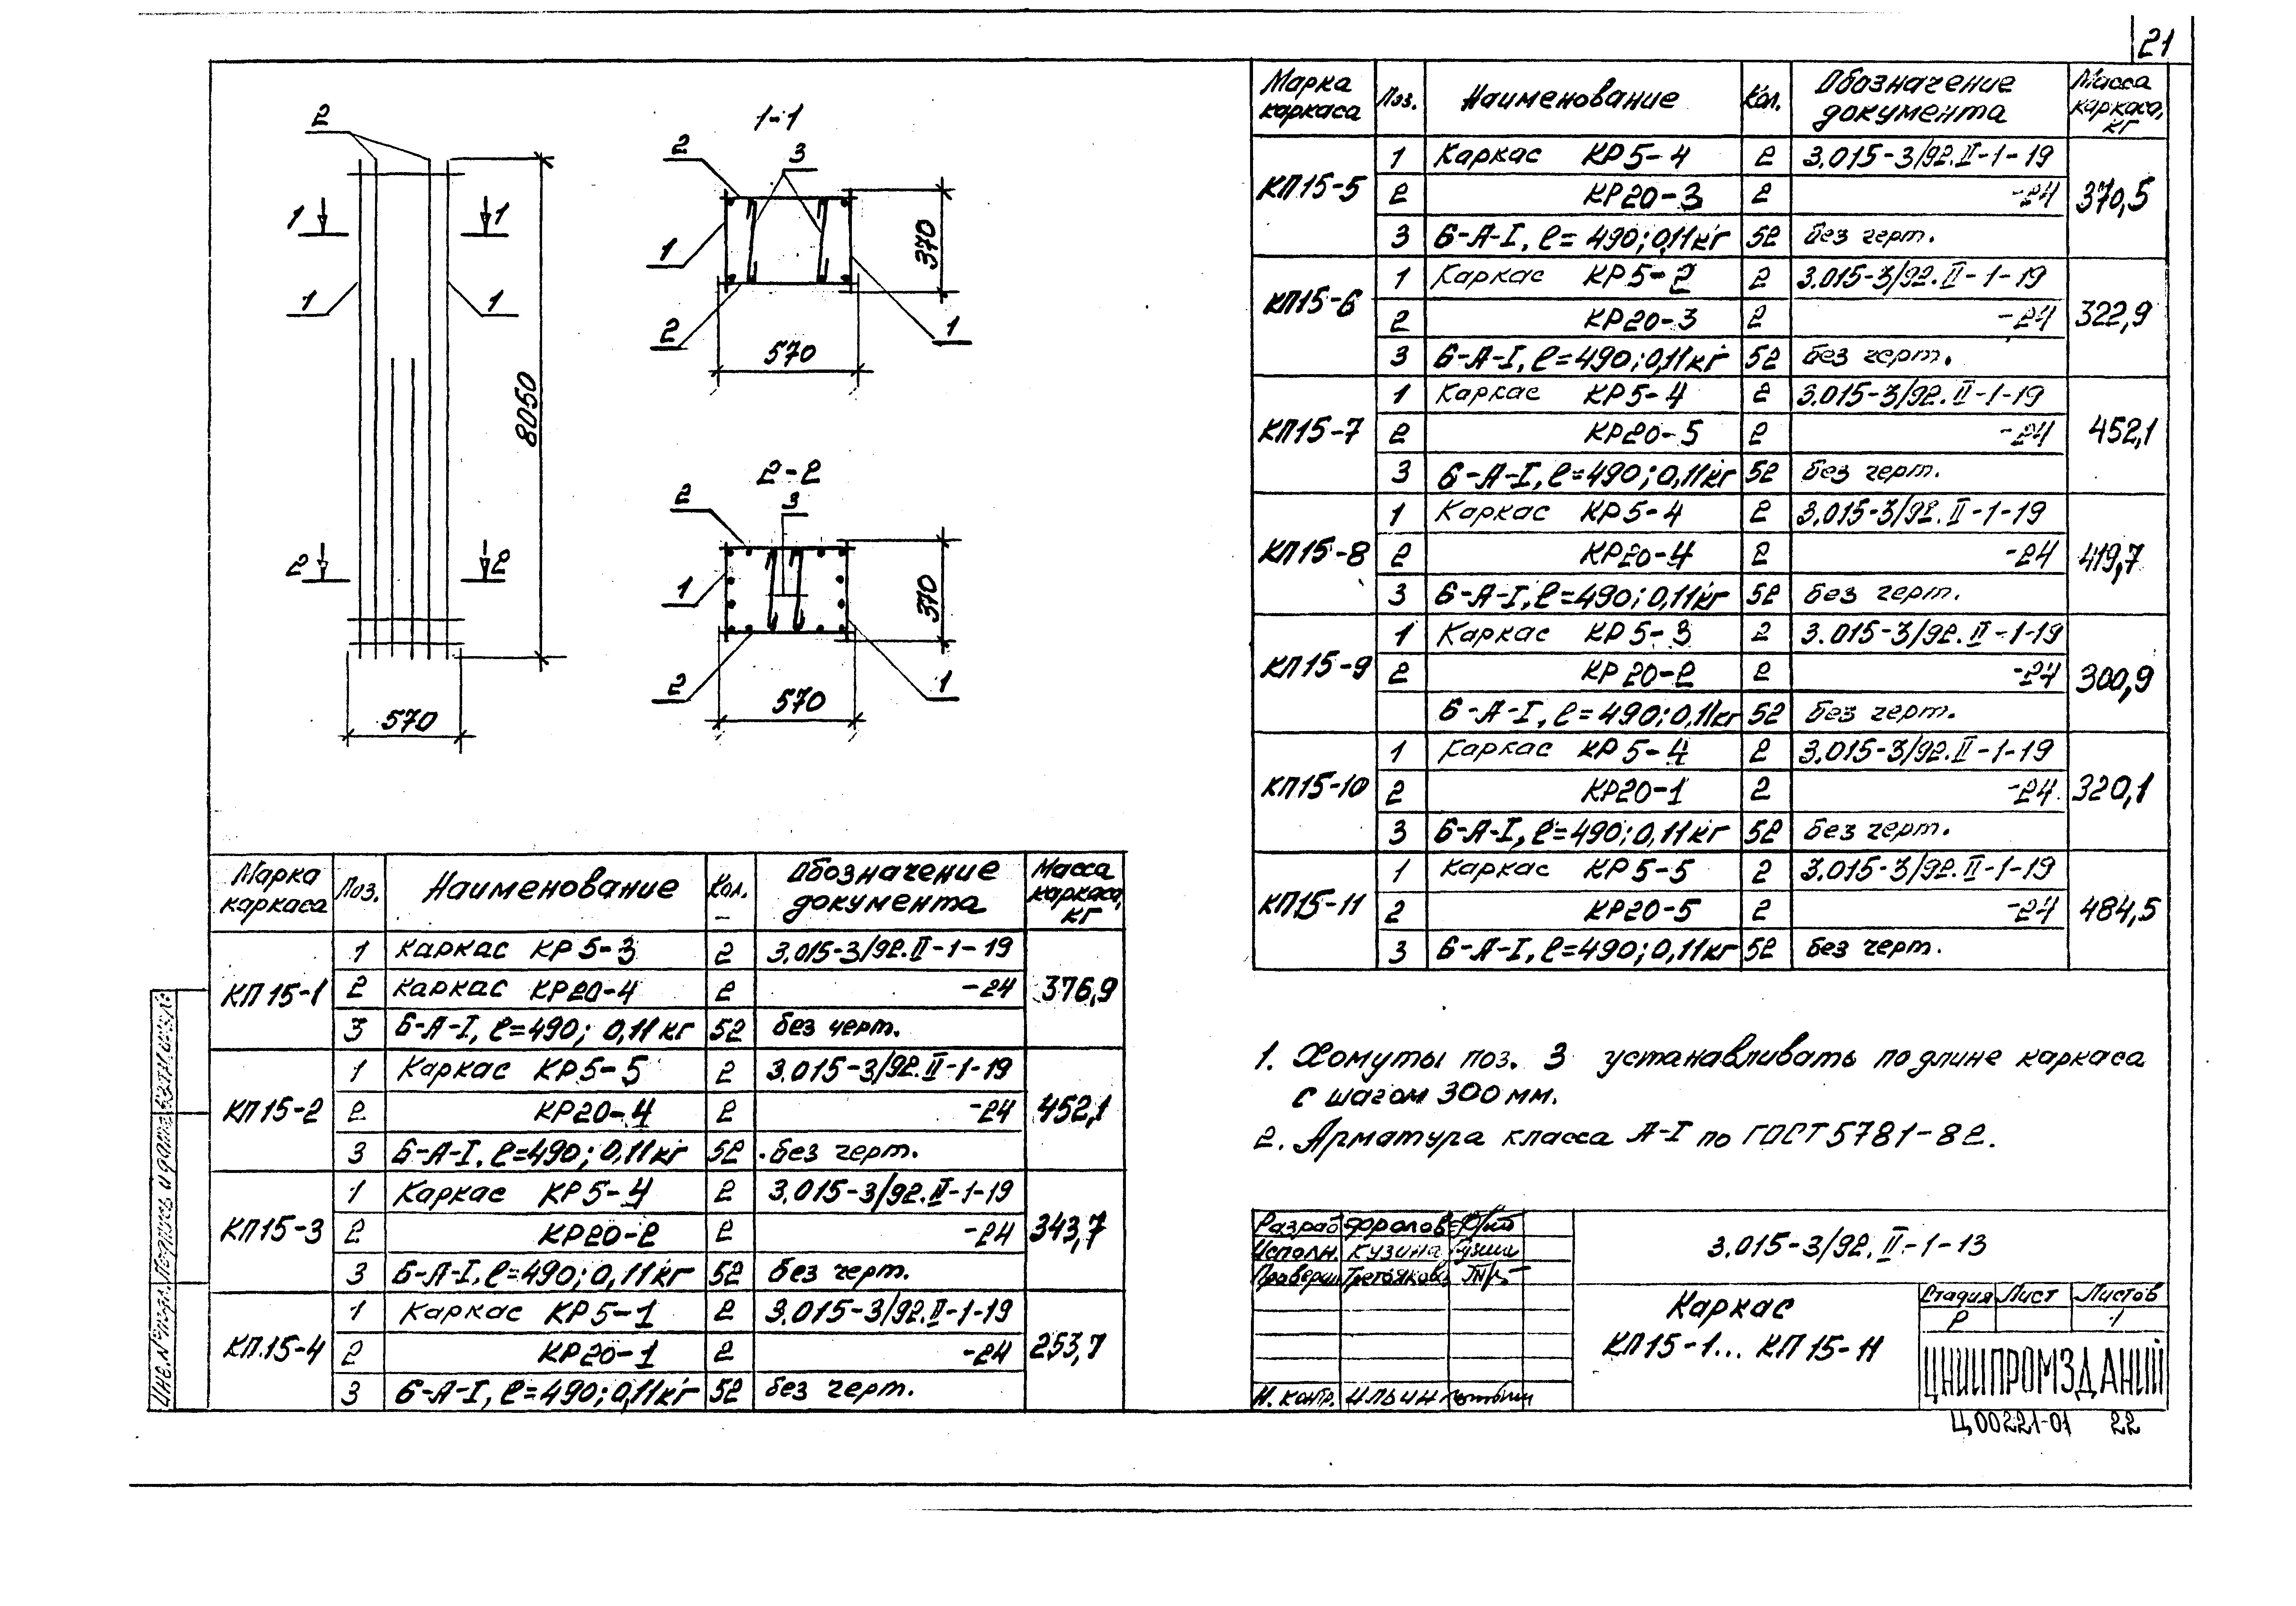 21
2
1 1
1 1
2 2
8050
570
1-1
2 3
1
2 1
370
570
2-2
2 3
1
2 1
370
570
Марка каркаса Поз. Наименование Кол. Обозначение документа Масса каркаса, кг
КП15-1 376,9
1 Каркас КР5-3 2 3.015-3/92.II-1-19
2 Каркас КР20-4 2 -24
3 6-А-I, ℓ=490; 0,11кг 52 без черт.
КП15-2 452,1
1 Каркас КР5-5 2 3.015-3/92.II-1-19
2 КР20-4 2 -24
3 6-А-I, ℓ=490; 0,11кг 52 без черт.
КП15-3 343,7
1 Каркас КР5-4 2 3.015-3/92.II-1-19
2 КР20-2 2 -24
3 6-А-I, ℓ=490; 0,11кг 52 без черт.
КП.15-4 253,7
1 Каркас КР5-1 2 3.015-3/92.II-1-19
2 КР20-1 2 -24
3 6-А-I, ℓ=490; 0,11кг 52 без черт.
Марка каркаса Поз. Наименование Кол. Обозначение документа Масса каркаса, кг
КП15-5 370,5
1 Каркас КР5-4 2 3.015-3/92.II-1-19
2 КР20-3 2 -24
3 6-А-I, ℓ=490; 0,11кг 52 без черт.
КП15-6 322,9
1 Каркас КР5-2 2 3.015-3/92.II-1-19
2 КР20-3 2 -24
3 6-А-I, ℓ=490; 0,11кг 52 без черт.
КП15-7 452,1
1 Каркас КР5-4 2 3.015-3/92.II-1-19
2 КР20-5 2 -24
3 6-А-I, ℓ=490; 0,11кг 52 без черт.
КП15-8 419,7
1 Каркас КР5-4 2 3.015-3/92.II-1-19
2 КР20-4 2 -24
3 6-А-I, ℓ=490; 0,11кг 52 без черт.
КП15-9 300,9
1 Каркас КР5-3 2 3.015-3/92.II-1-19
2 КР20-2 2 -24
6-А-I, ℓ=490; 0,11кг 52 без черт.
КП15-10 320,1
1 Каркас КР5-4 2 3.015-3/92.II-1-19
2 КР20-1 2 -24
3 6-А-I, ℓ=490; 0,11кг 52 без черт.
КП15-11 484,5
1 Каркас КР5-5 2 3.015-3/92.II-1-19
2 КР20-5 2 -24
3 6-А-I, ℓ=490; 0,11кг 52 без черт.
1. Хомуты поз. 3 устанавливать по длине каркаса
с шагом 300мм.
2. Арматура класса А-I по ГОСТ 5781-82.
Разраб Фролов
Исполн. Кузина
Н. контр. Ильин
3.015-3/92.II-1-13
Каркас
КП15-1... КП15-11
Стадия Лист Листов
Р 1
ЦНИИПРОМЗДАНИЙ
Ц00221-01 22
Инв.№ подл. Подпись и дата